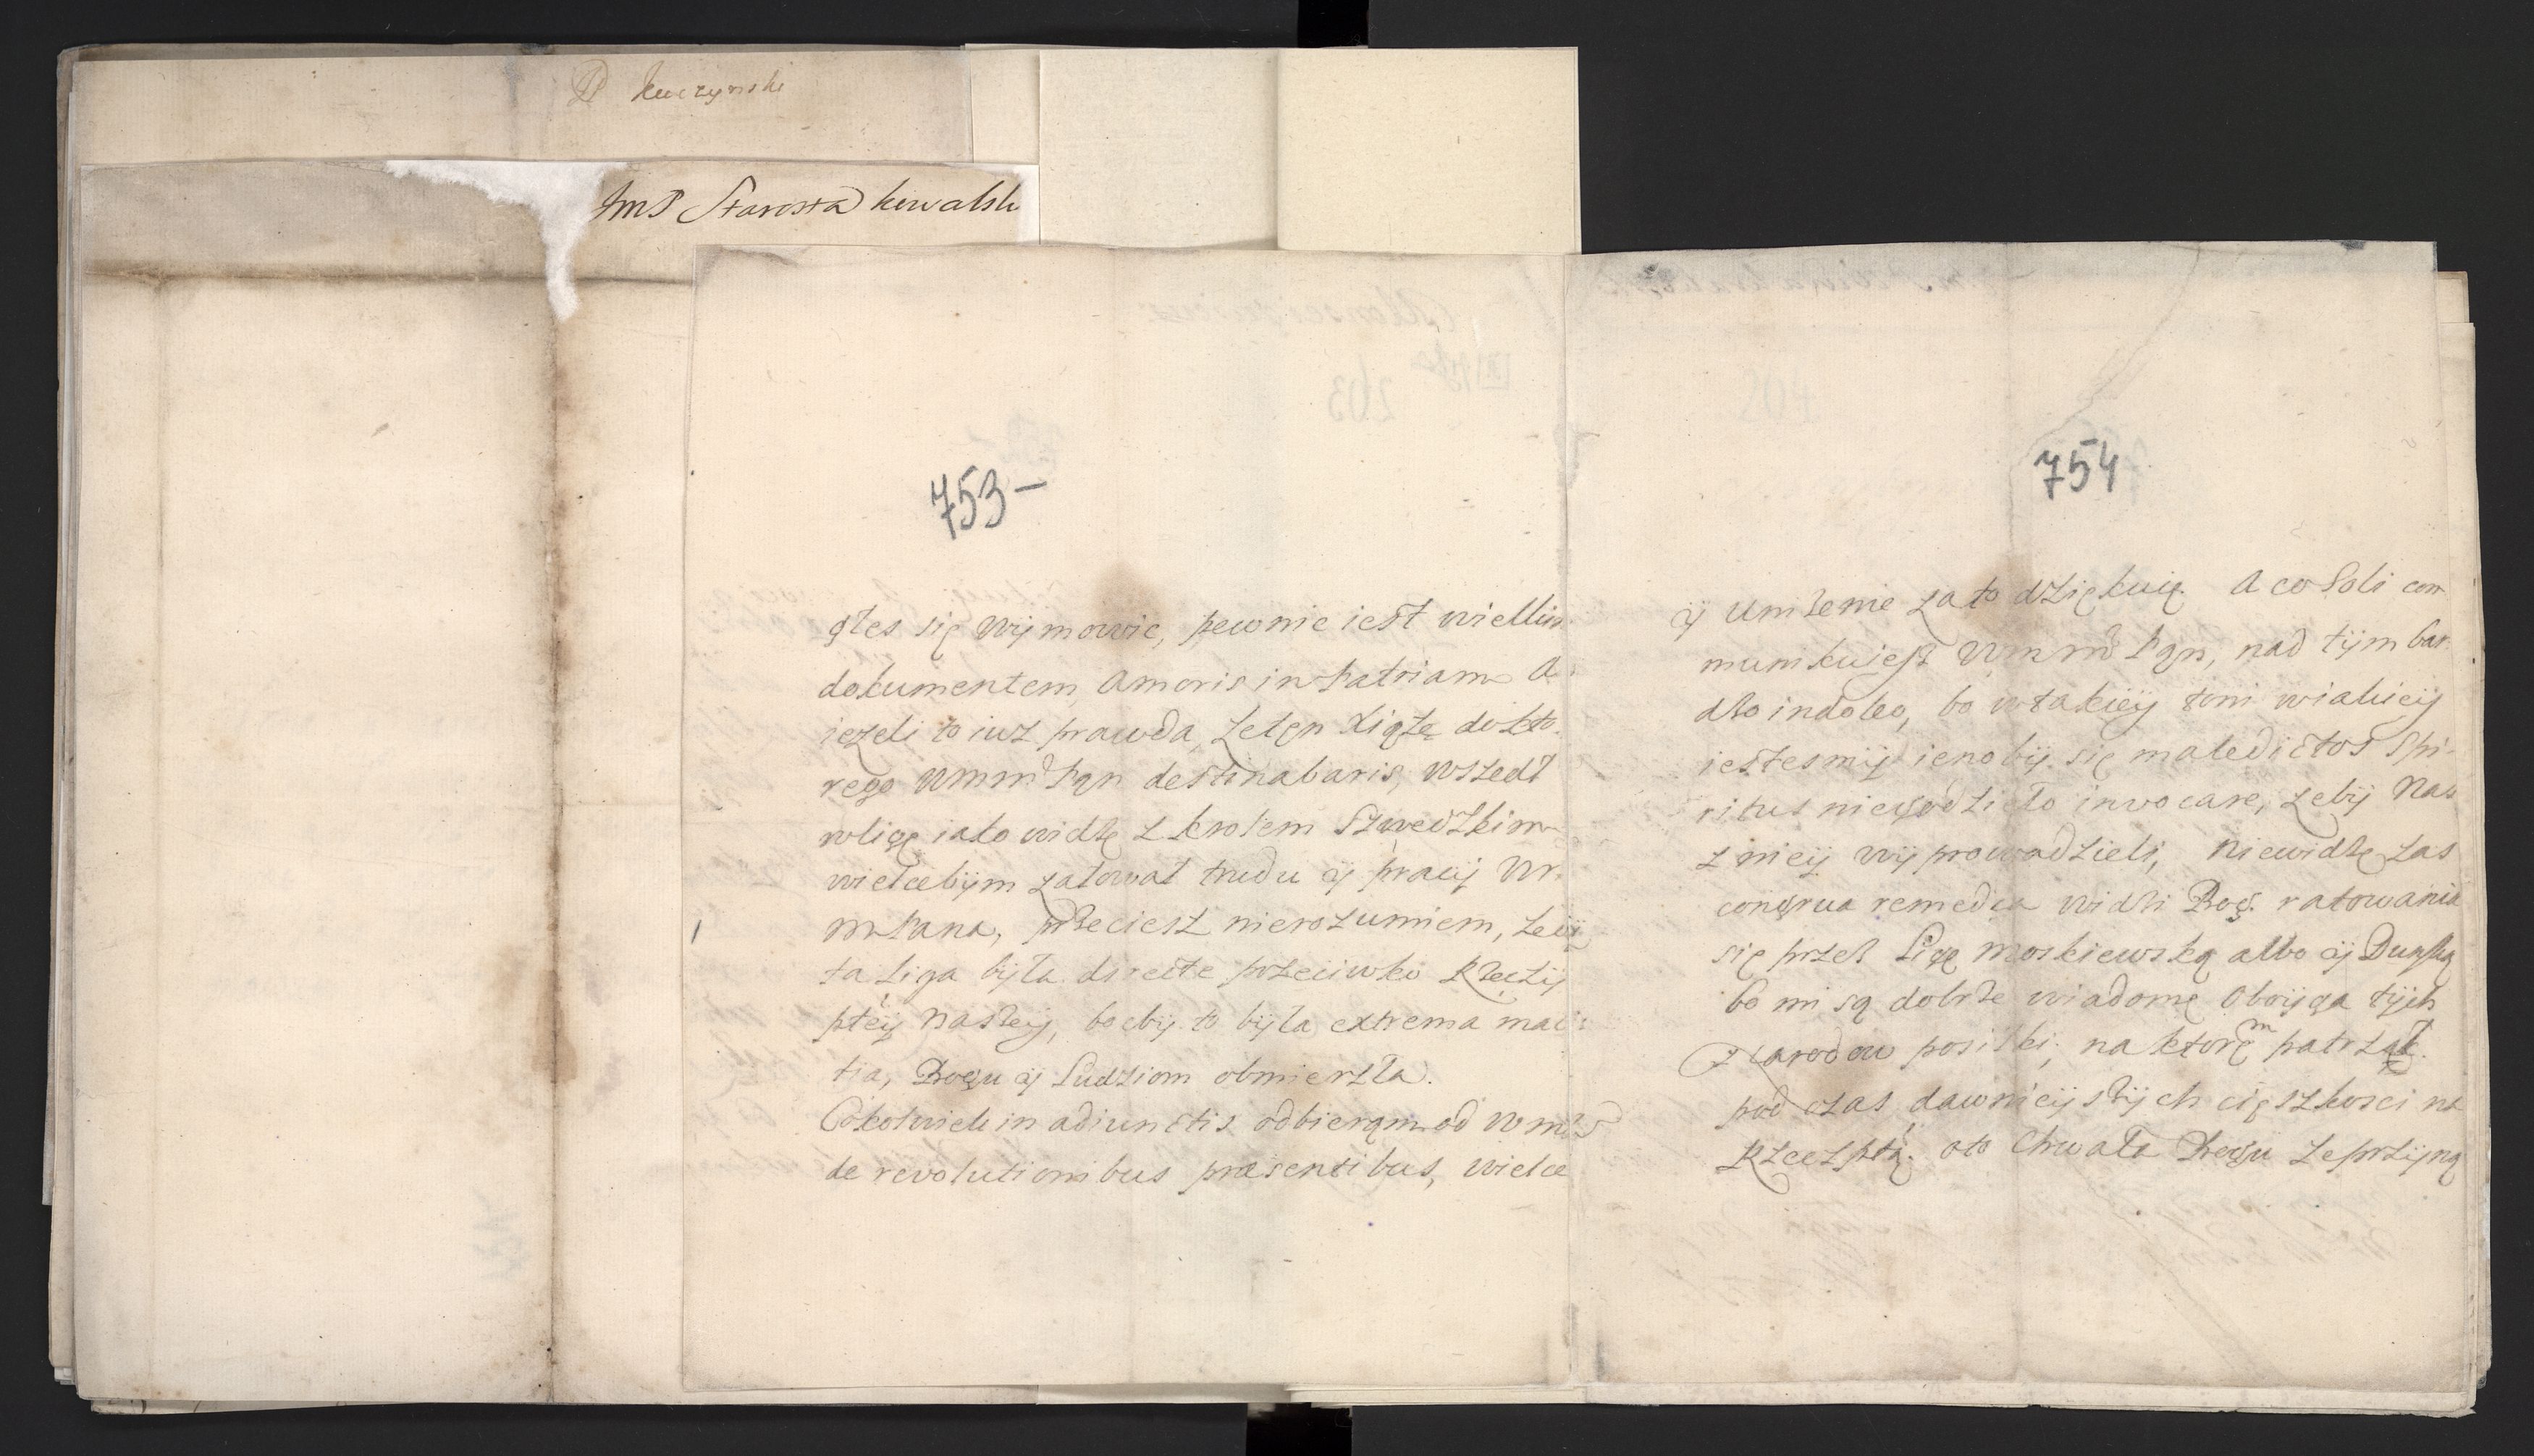 P Kuczynski
JmP Starosta kowalski
753-
głes się wÿmowic, pewnie iest wielkim
dokumentem Amoris in Patriam A
ieżeli to iuż prawda, że ten Xiąże do kto
rego WmmPan destinabaris, wszedł
w ligę iako widzę z krolem Szwedzkim
wielcebÿm żałował trudu ÿ pracÿ W
mPana, przeciesz nierozumiem, żebÿ
ta Liga bÿła directe przeciwko Rzeczÿ
ptéÿ naszeÿ, boćbÿ to bÿła extrema mali
tia, Bogu ÿ Ludziom obmierzła.
Cokolwiek in adiunctis odbieram od Wm
de revolutionibus præsentibus, wielce
754
ÿ unizenie za to dziękuię. A co Soli com
munikuiesz WmmPan, nad tÿm bar
dzo indoleo, bo w takieÿ toni wialkieÿ
iestesmÿ ieno bÿ się maledictos Spi
ritus niegodzieło invocare, żebÿ nas
z nieÿ wÿprowadzieli, niewidzę zas
congrua remedia widzi Bog. ratowania
się przez Ligę Moskiewską albo ÿ Dunską
bo mi są dobrze wiadome oboÿga tÿch
Narodow posiłki, na ktorem patrzał
pod czas dawnieÿszÿch cięszkosci na
Rzeczptą. oto Chwała Bogu ze przÿną